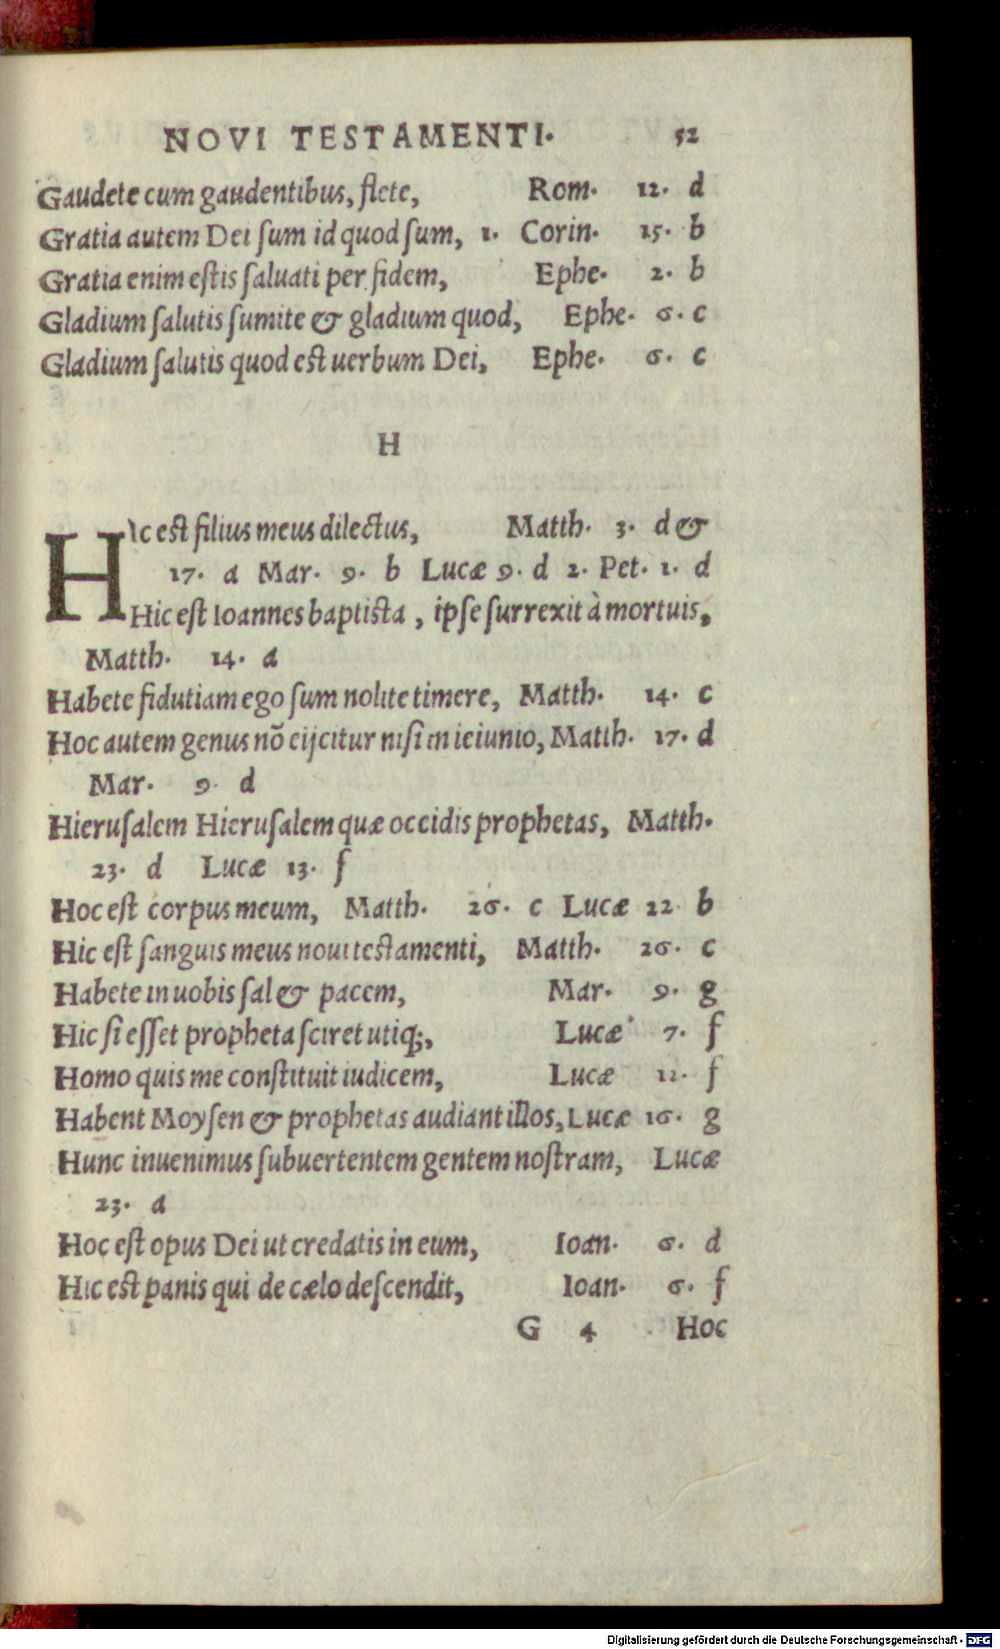 NOVI TESTAMENTI. 52
Gaudete cum gaudentibus, flete, Rom. 12. d
Gratia autem Dei ſum id quod ſum, 1. Corin. 15. b
Gratia enim eſtis ſaluati per fidem, Ephe. 2. b
Gladium ſalutis ſumite & gladium quod, Ephe. 6. c
Gladium ſalutis quod eſt uerbum Dei, Ephe. 6. c
H
HIc eſt filius meus dilectus, Matth. 3. d &
17. a Mar. 9. b Lucæ 9. d 2. Pet. 1. d
Hic eſt Ioannes baptiſta, ipſe ſurrexit à mortuis,
Matth. 14. a
Habete fidutiam ego ſum nolite timere, Matth. 14. c
Hoc autem genus nõ eijcitur niſi in ieiunio, Matth. 17. d
Mar. 9. d
Hieruſalem Hieruſalem quæ occidis prophetas, Matth.
23. d Lucæ 13. f
Hoc eſt corpus meum, Matth. 26. c Lucæ 22 b
Hic eſt ſanguis meus noui teſtamenti, Matth. 26. c
Habete in uobis ſal & pacem, Mar. 9. g
Hic ſi eſſet propheta ſciret utiq;, Lucæ 7. f
Homo quis me conſtituit iudicem, Lucæ 12. f
Habent Moyſen & prophetas audiant illos, Lucæ 16. g
Hunc inuenimus ſubuertentem gentem noſtram, Lucæ
23. a
Hoc eſt opus Dei ut credatis in eum, Ioan. 6. d
Hic eſt panis qui de cælo deſcendit, Ioan. 6. f
G 4 Hoc
Digitalisierung gefördert durch die Deutsche Forschungsgemeinschaft - DFG